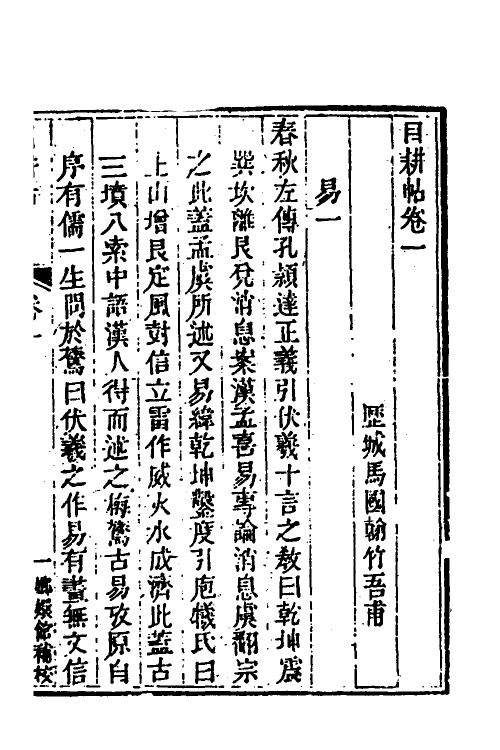 目耕帖卷一
歷城馬國翰竹吾甫
易一
春秋左傳孔頴達正義引伏羲十言之敎曰乾坤震
巽坎離艮兌消息案漢孟喜易專論消息虞翻宗
之此蓋孟虞所述又易緯乾坤鑿度引庖犧氏曰
上山增艮定風對信立雷作威火水成濟此蓋古
三墳八索中語漢人得而述之梅鷟古易攷原自
序有儒一生問於鷟曰伏羲之作易有畫無文信
卷一
一嫏嬛館補校